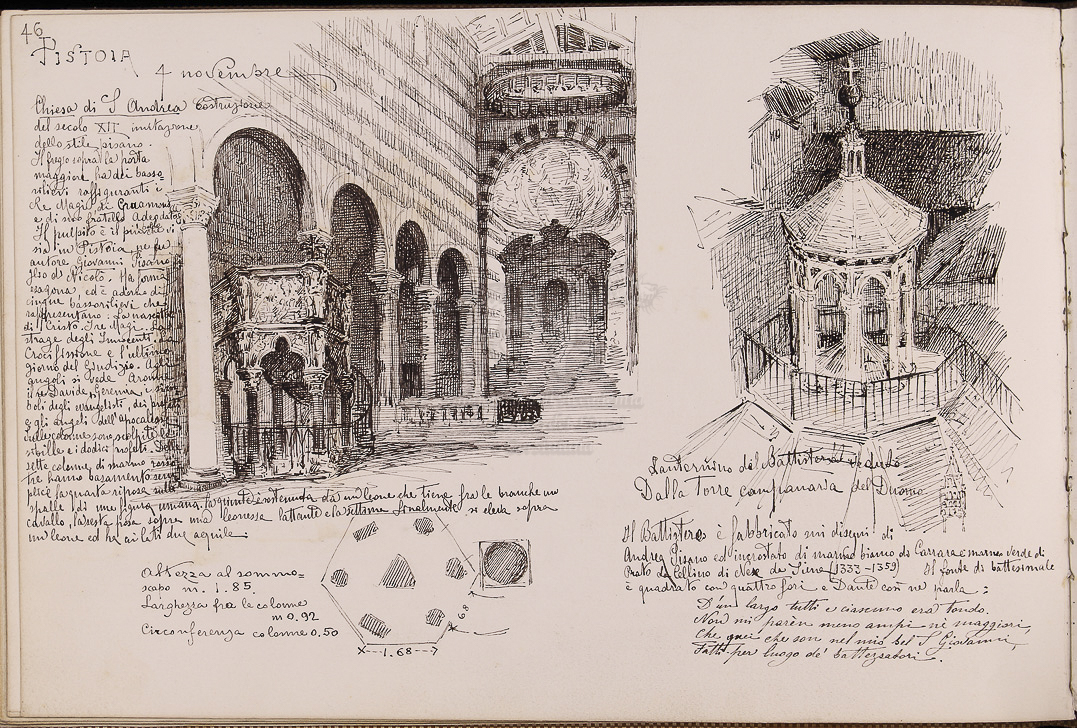 46
PISTOIA
4 novembre
Chiesa di S Andrea costruzione
del secolo XII imitazione
dello stile pisano.
Il fregio sopra la porta
maggiore ha dei basso
rilievi raffiguranti i
Re Magi di Gruamons
e di suo fratello Adeodatus
Il pulpito è il più
sia in Pistoia ne fu
autore Giovanni Pisano
figlio di Nicolò. Ha forma
esagona, ed è adorno di
cinque bassorilievi che
rappresentano: La nascita
di Cristo. I re Magi. La
strage degli Innocenti. La
Crocifissione e l'ultimo
giorno del Giudizio. Agli
angoli si vede Aronne
il re Davide, Geremia, i sim
boli degli evangelisti, dei
e gli angeli dell'apocalisse
sulle colonne sono scolpite le
sibille e i dodici profeti. Delle
sette colonne di marmo rosso
tre hanno basamento sem
plice la quarta riposa sulle
spalle di una figura umana. la quinta è sostenuta da un leone che tiene fra le branche un
cavallo, la sesta posa sopra una leonessa lattante e la settima finalmente si eleva sopra
un leone ed ha ai lati due aquile.
Altezza al sommo=
scapo m. 1.85.
Larghezza fra le colonne
m 0.92
Circonferenza colonne 0.50
68
1.68
Lanternino del Battistero veduto
Dalla Torre campanaria del Duomo
Il Battistero è fabbricato sui disegni di
Andrea Pisano ed incrostato di marmo bianco di Carrara e marmo verde di
Prato da Cellino di Nese da Siena (1333-1359) Il fonte di battesimale
è quadrato con quattro fori e Dante così ne parla:
D'un largo tutti e ciascuno era tondo.
Non mi parèn meno ampi nè maggiori,
Che quei che son nel mio bel S Giovanni,
Fatti per luogo de' battezzatori.